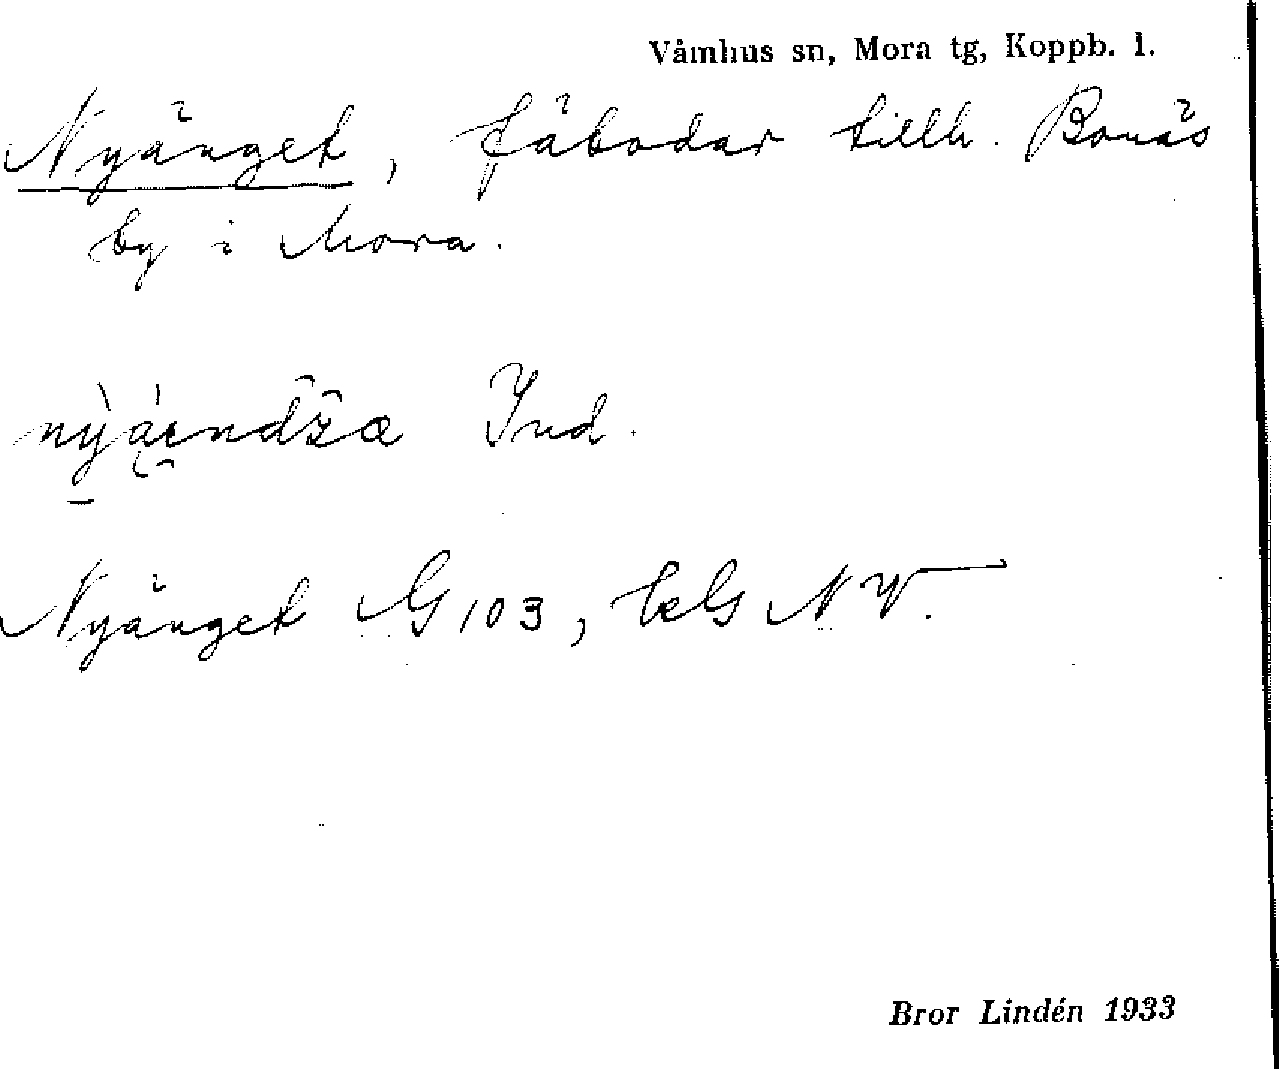 Våmhus sn, Mora tg, Koppb. l.
Nyänget, fäbodar tillh. Bonäs
by i Mora.
Ind.
Nyänget G 103, NV.
Bror Lindén 1933